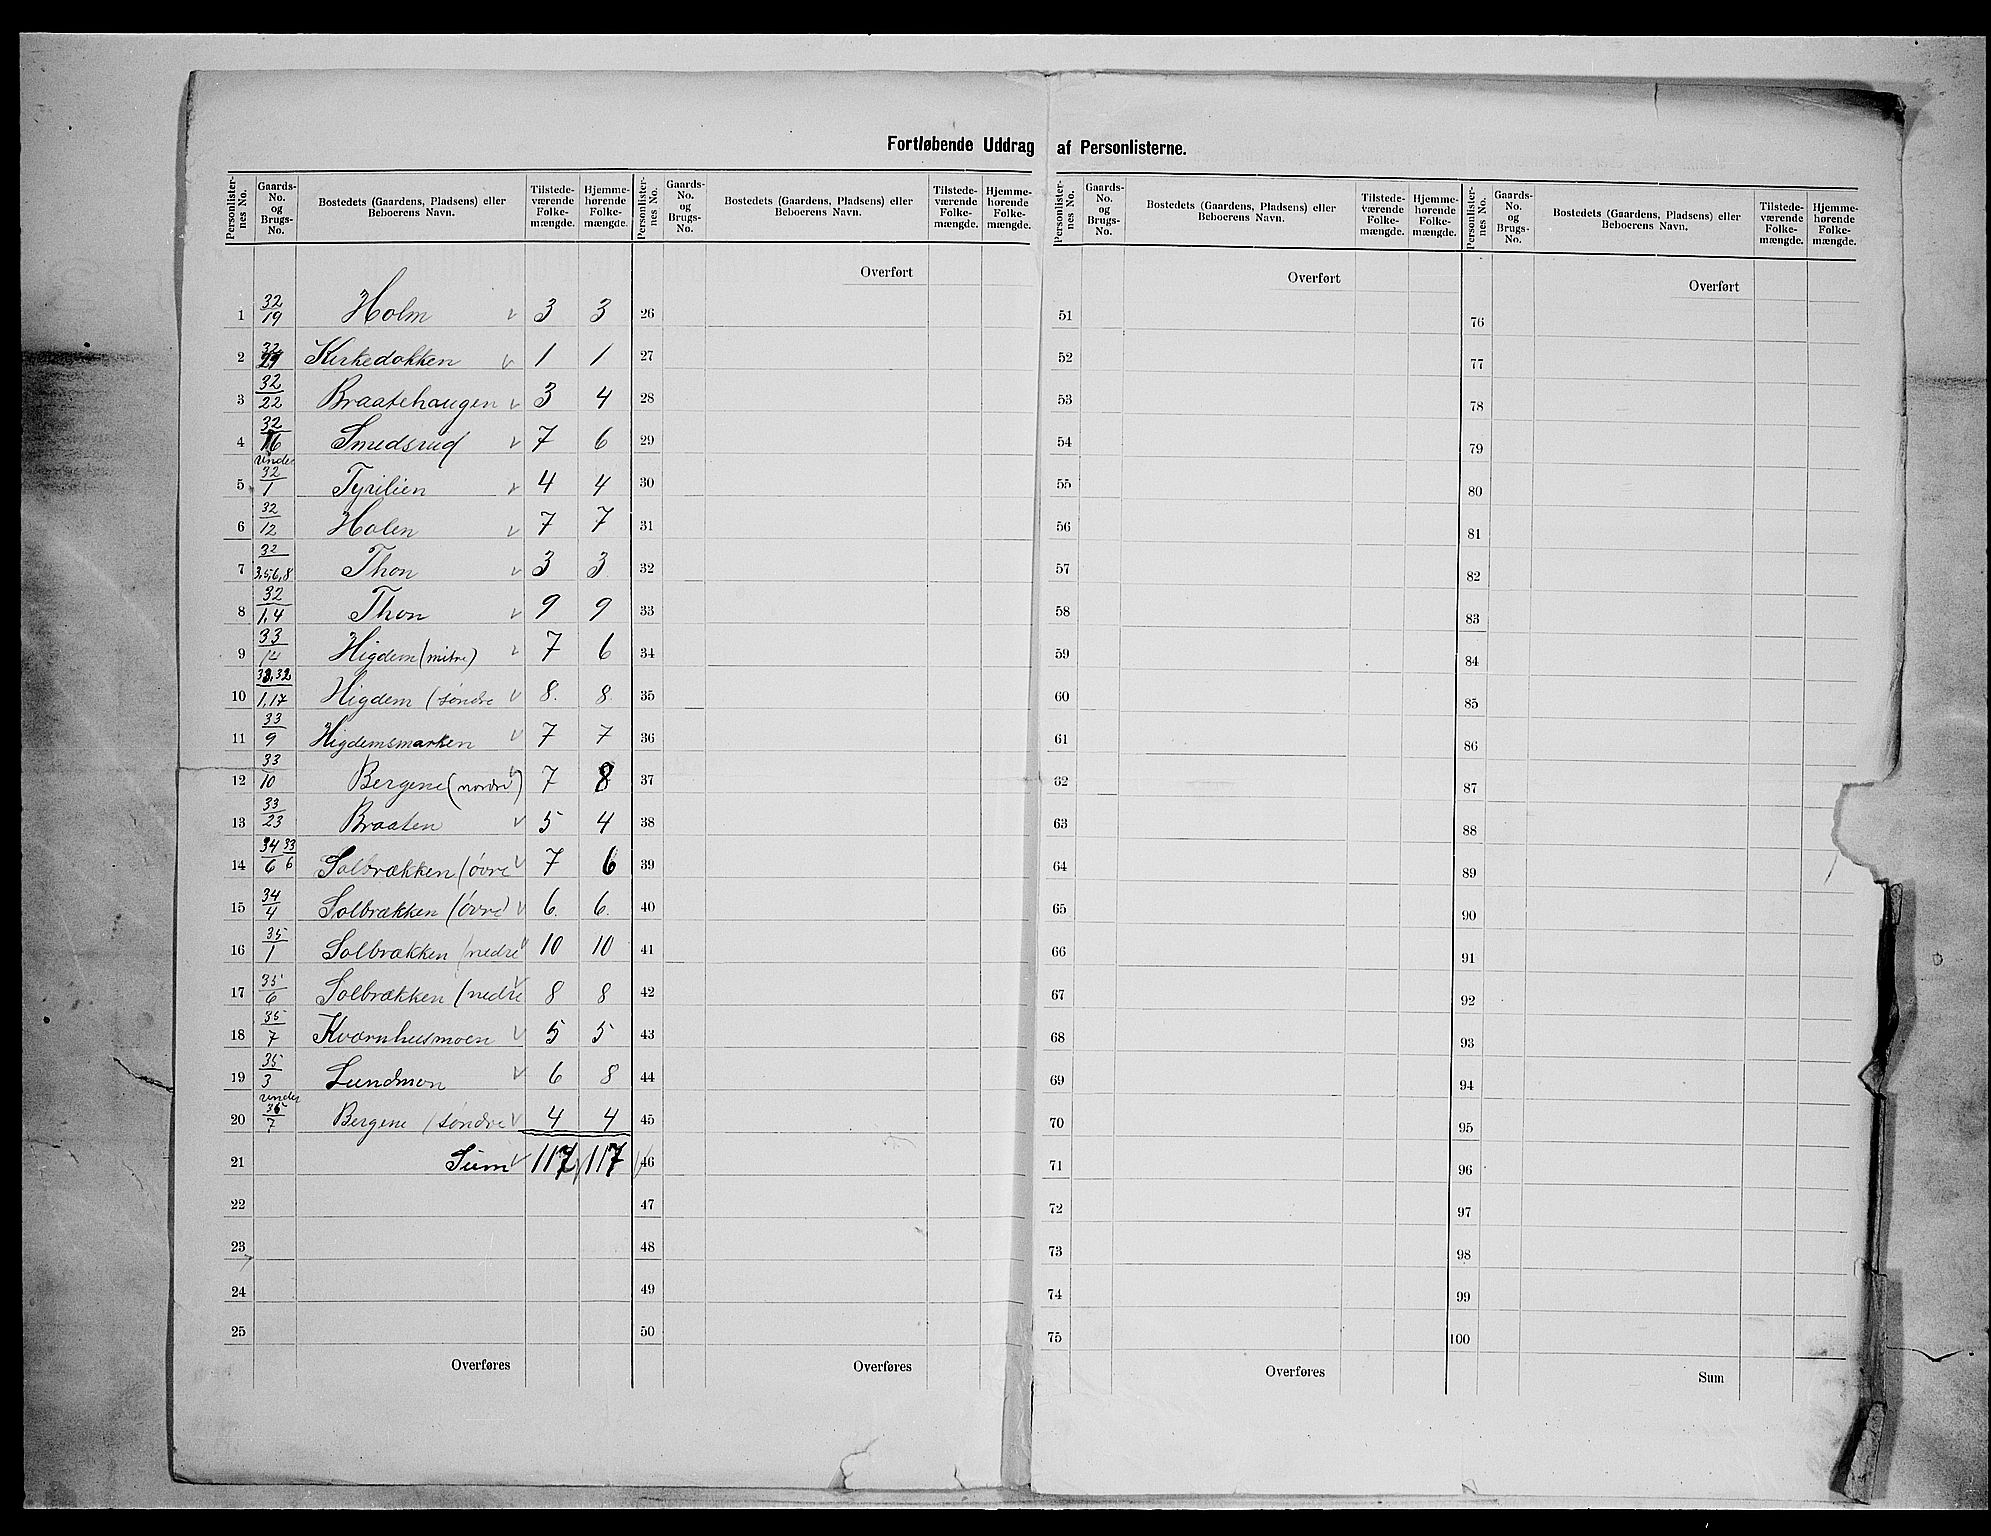 Fortløbende Uddrag af Personlisterne.
Personlister-nes No. | Gaards-No. og Brugs-No. | Bostedets (Gaardens, Pladsens) eller Beboerens Navn. | Tilstede-værende Folke-mængde. | Hjemme-hørende Folke-mængde.
1 | 32/19 | Holm v | 3 | 3
2 | 32/ | Kirkedokken v | 1 | 1
3 | 32/22 | Braatehaugen v | 3 | 4
4 | 32/16 | Smedsrud v | 7 | 6
5 | under 32/1 | Tyrilien v | 4 | 4
6 | 32/12 | Holen v | 7 | 7
7 | 32/3,5,6,8 | Thon v | 3 | 3
8 | 32/1,4 | Thon v | 9 | 9
9 | 33/14 | Higdem (mitre) v | 7 | 6
10 | 33,32/1,17 | Higdem (søndre v | 8. | 8.
11 | 33/9 | Higdemsmarken v | 7 | 7
12 | 33/10 | Bergene (nordre) v | 7 | 8
13 | 33/23 | Braaten v | 5 | 4
14 | 34/6 33/6 | Solbrækken (øvre v | 7 | 6
15 | 34/4 | Solbrækken (øvre) v | 6. | 6.
16 | 35/1 | Solbrækken (nedre v | 10 | 10
17 | 35/6 | Solbrækken (nedre v | 8 | 8
18 | 35/7 | Kværnhusmoen v | 5 | 5
19 | 35/3 | Lundmon v | 6 | 8
20 | under 35/7 | Bergene (søndre v | 4 | 4
21 | Sum v | 117 | 117
22
23
24
25
Overføres
Personlister-nes No. | Gaards-No. og Brugs-No. | Bostedets (Gaardens, Pladsens) eller Beboerens Navn. | Tilstede-værende Folke-mængde. | Hjemme-hørende Folke-mængde.
Overført
26
27
28
29
30
31
32
33
34
35
36
37
38
39
40
41
42
43
44
45
46
47
48
49
50
Overføres
Personlister-nes No. | Gaards-No. og Brugs-No. | Bostedets (Gaardens, Pladsens) eller Beboerens Navn. | Tilstede-værende Folke-mængde. | Hjemme-hørende Folke-mængde.
Overført
51
52
53
54
55
56
57
58
59
60
61
62
63
64
65
66
67
68
69
70
71
72
73
74
75
Overføres
Personlister-nes No. | Gaards-No. og Brugs-No. | Bostedets (Gaardens, Pladsens) eller Beboerens Navn. | Tilstede-værende Folke-mængde. | Hjemme-hørende Folke-mængde.
Overført
76
77
78
79
80
81
82
83
84
85
86
87
88
89
90
91
92
93
94
95
96
97
98
99
100
Sum